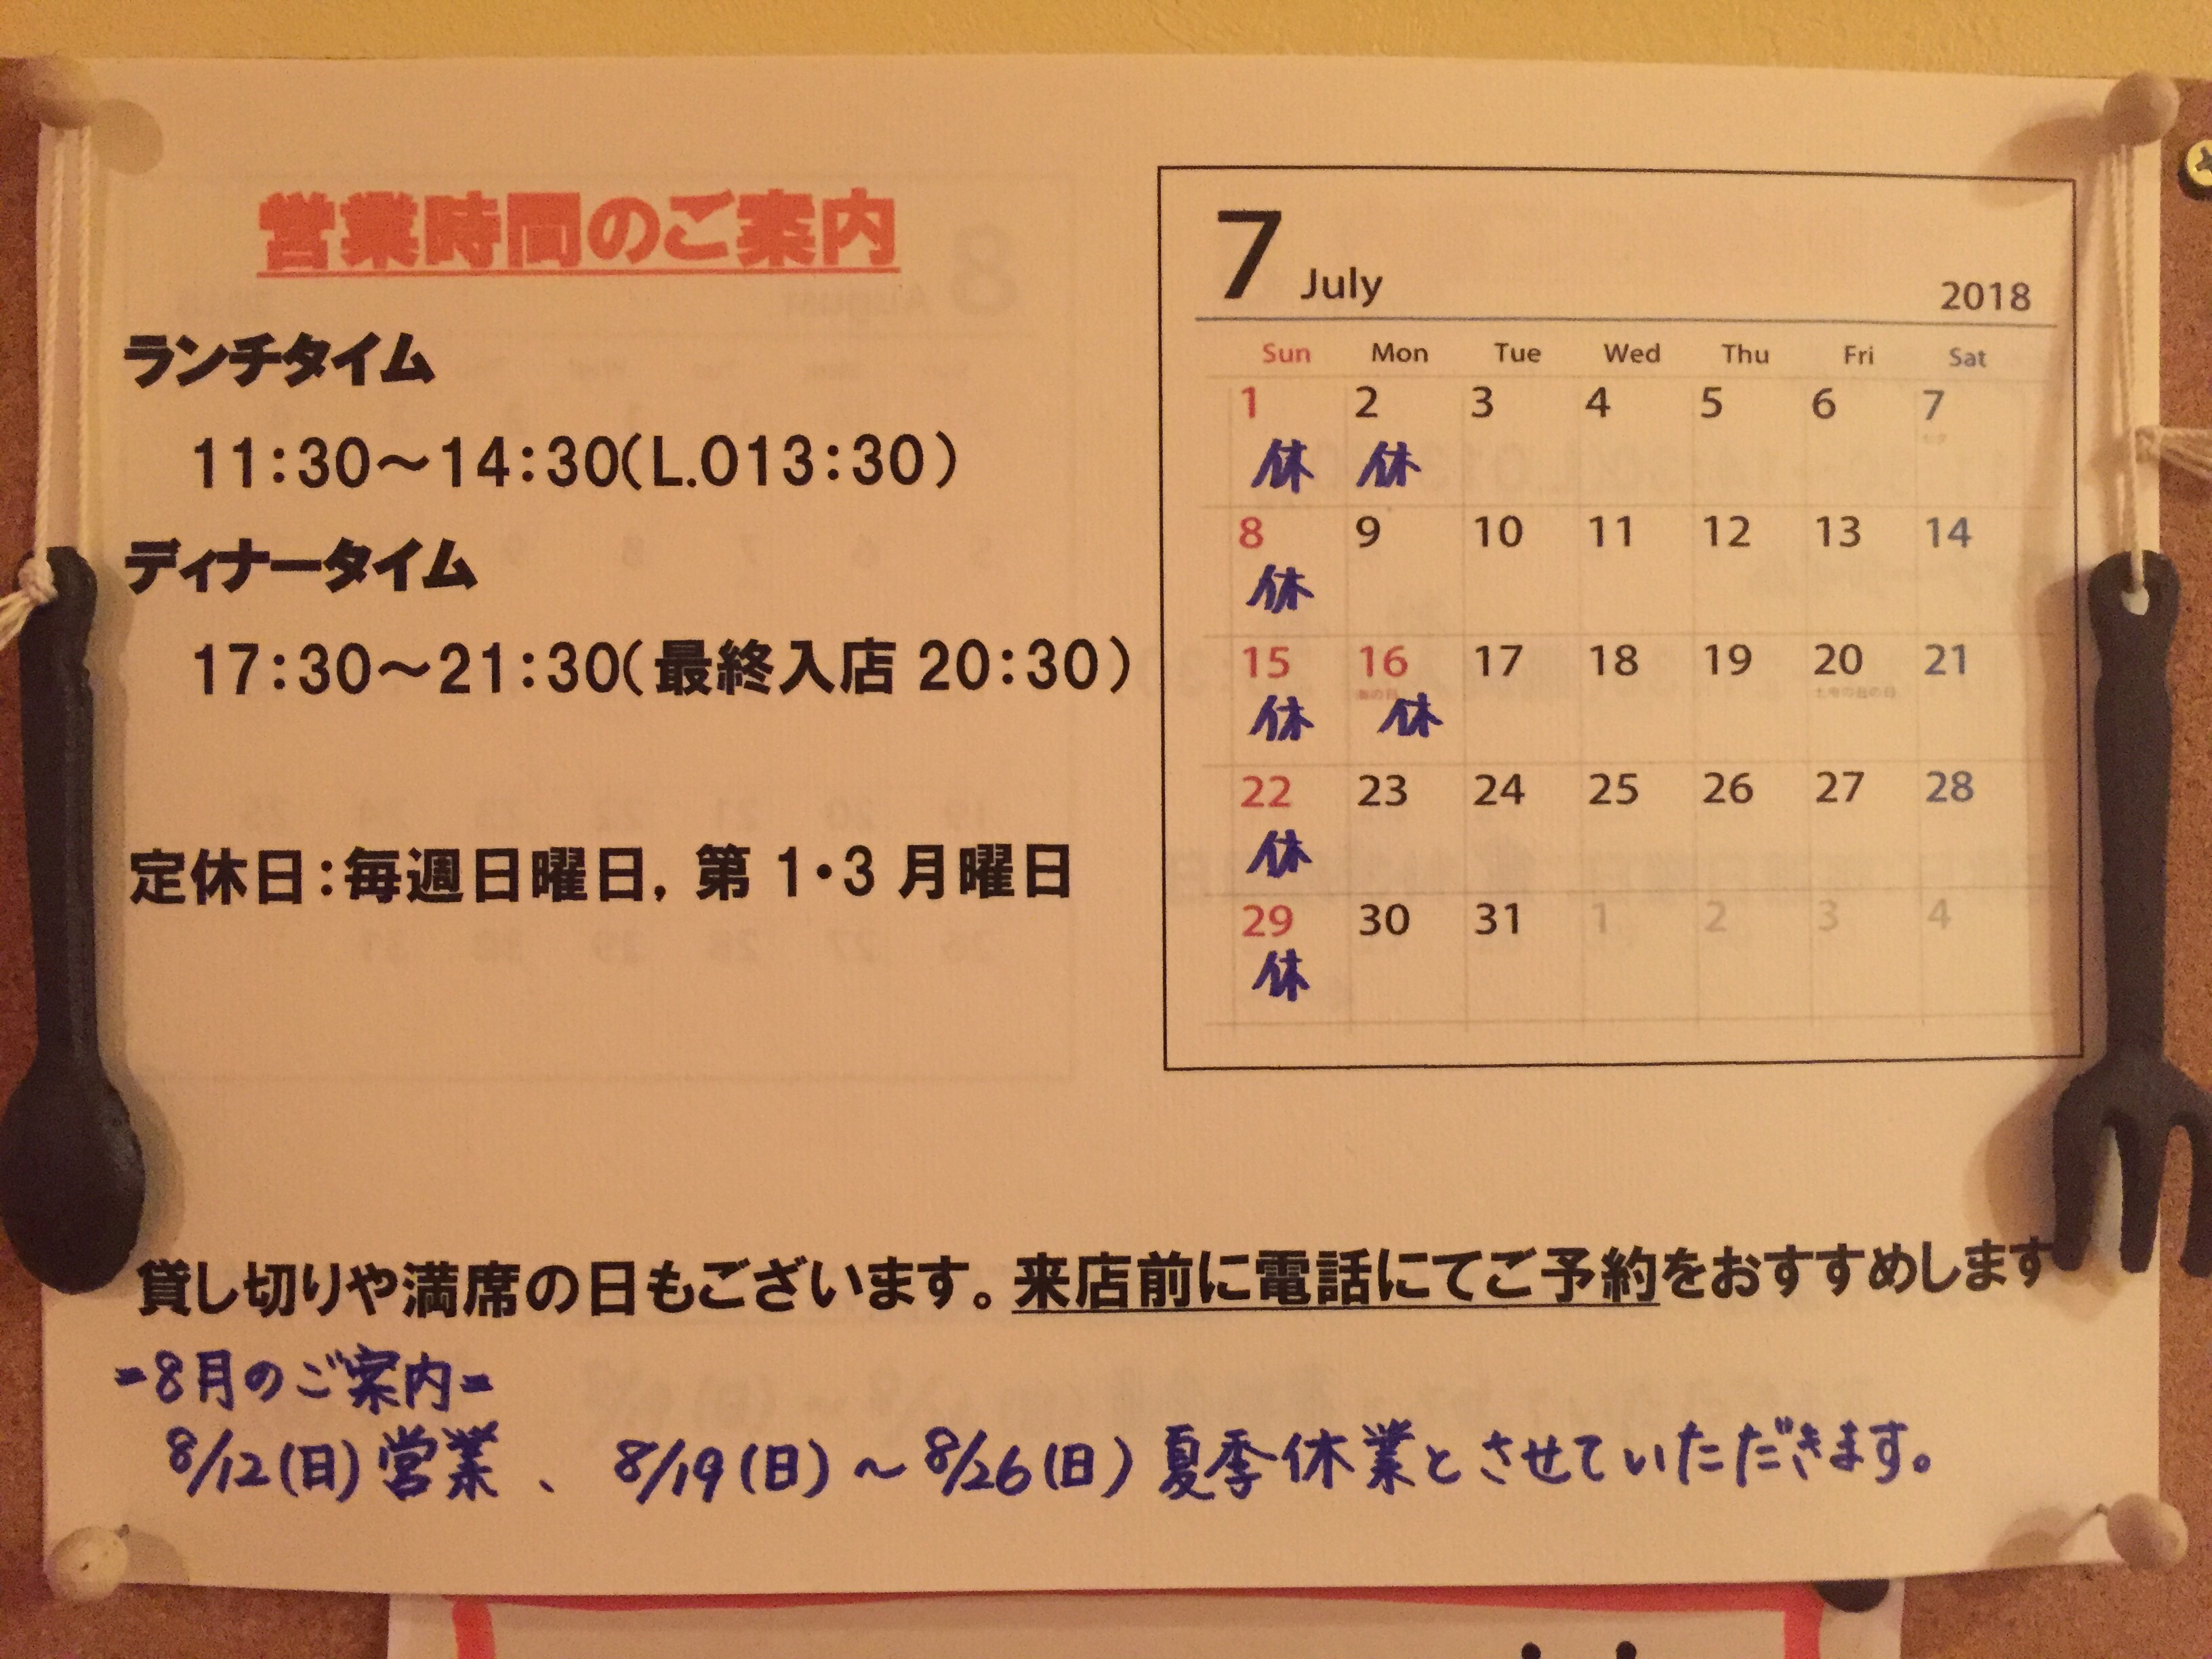 営業時間のご案内
ランチタイム
11:30～14:30(L.O13:30)
ディナータイム
17:30～21:30(最終入店 20:30)
定休日:毎週日曜日, 第 1・3 月曜日
7 July 2018
Sun Mon Tue Wed Thu Fri Sat
1 2 3 4 5 6 7
休 休
8 9 10 11 12 13 14
休
15 16 17 18 19 20 21
海の日 土用の丑の日
休 休
22 23 24 25 26 27 28
休
29 30 31 1 2 3 4
休
貸し切りや満席の日もございます。来店前に電話にてご予約をおすすめします
-8月のご案内-
8/12(日)営業、8/19(日)～8/26(日)夏季休業とさせていただきます。